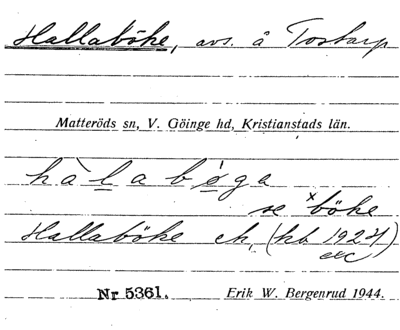 Hallaböke, avs. å Tostarp
Matteröds sn, V. Göinge hd, Kristianstads län.
hàlabǿga
se ˣböke
Hallaböke ch, (kb 1924)
etc
Nr 5361. Erik W. Bergenrud 1944.